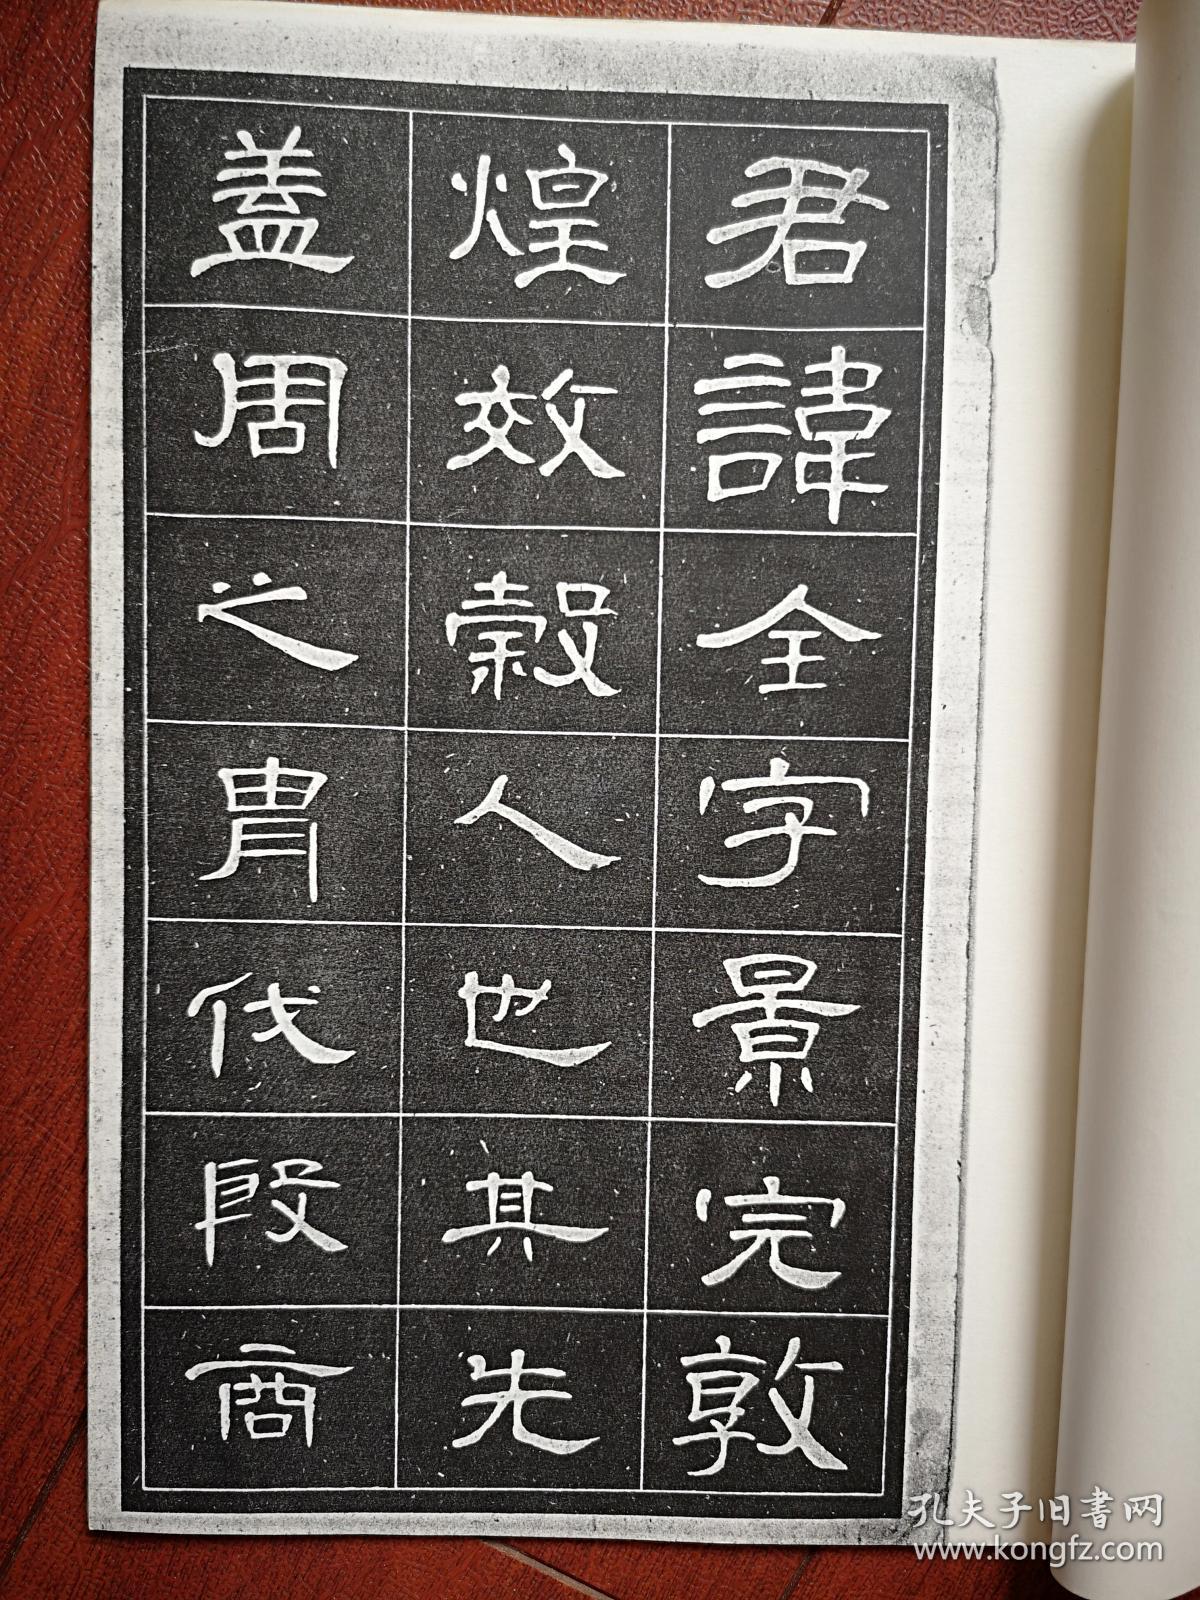 君諱全字景完敦
煌效穀人也其先
蓋周之胄伐殷商
孔夫子旧書网
www.kongfz.com